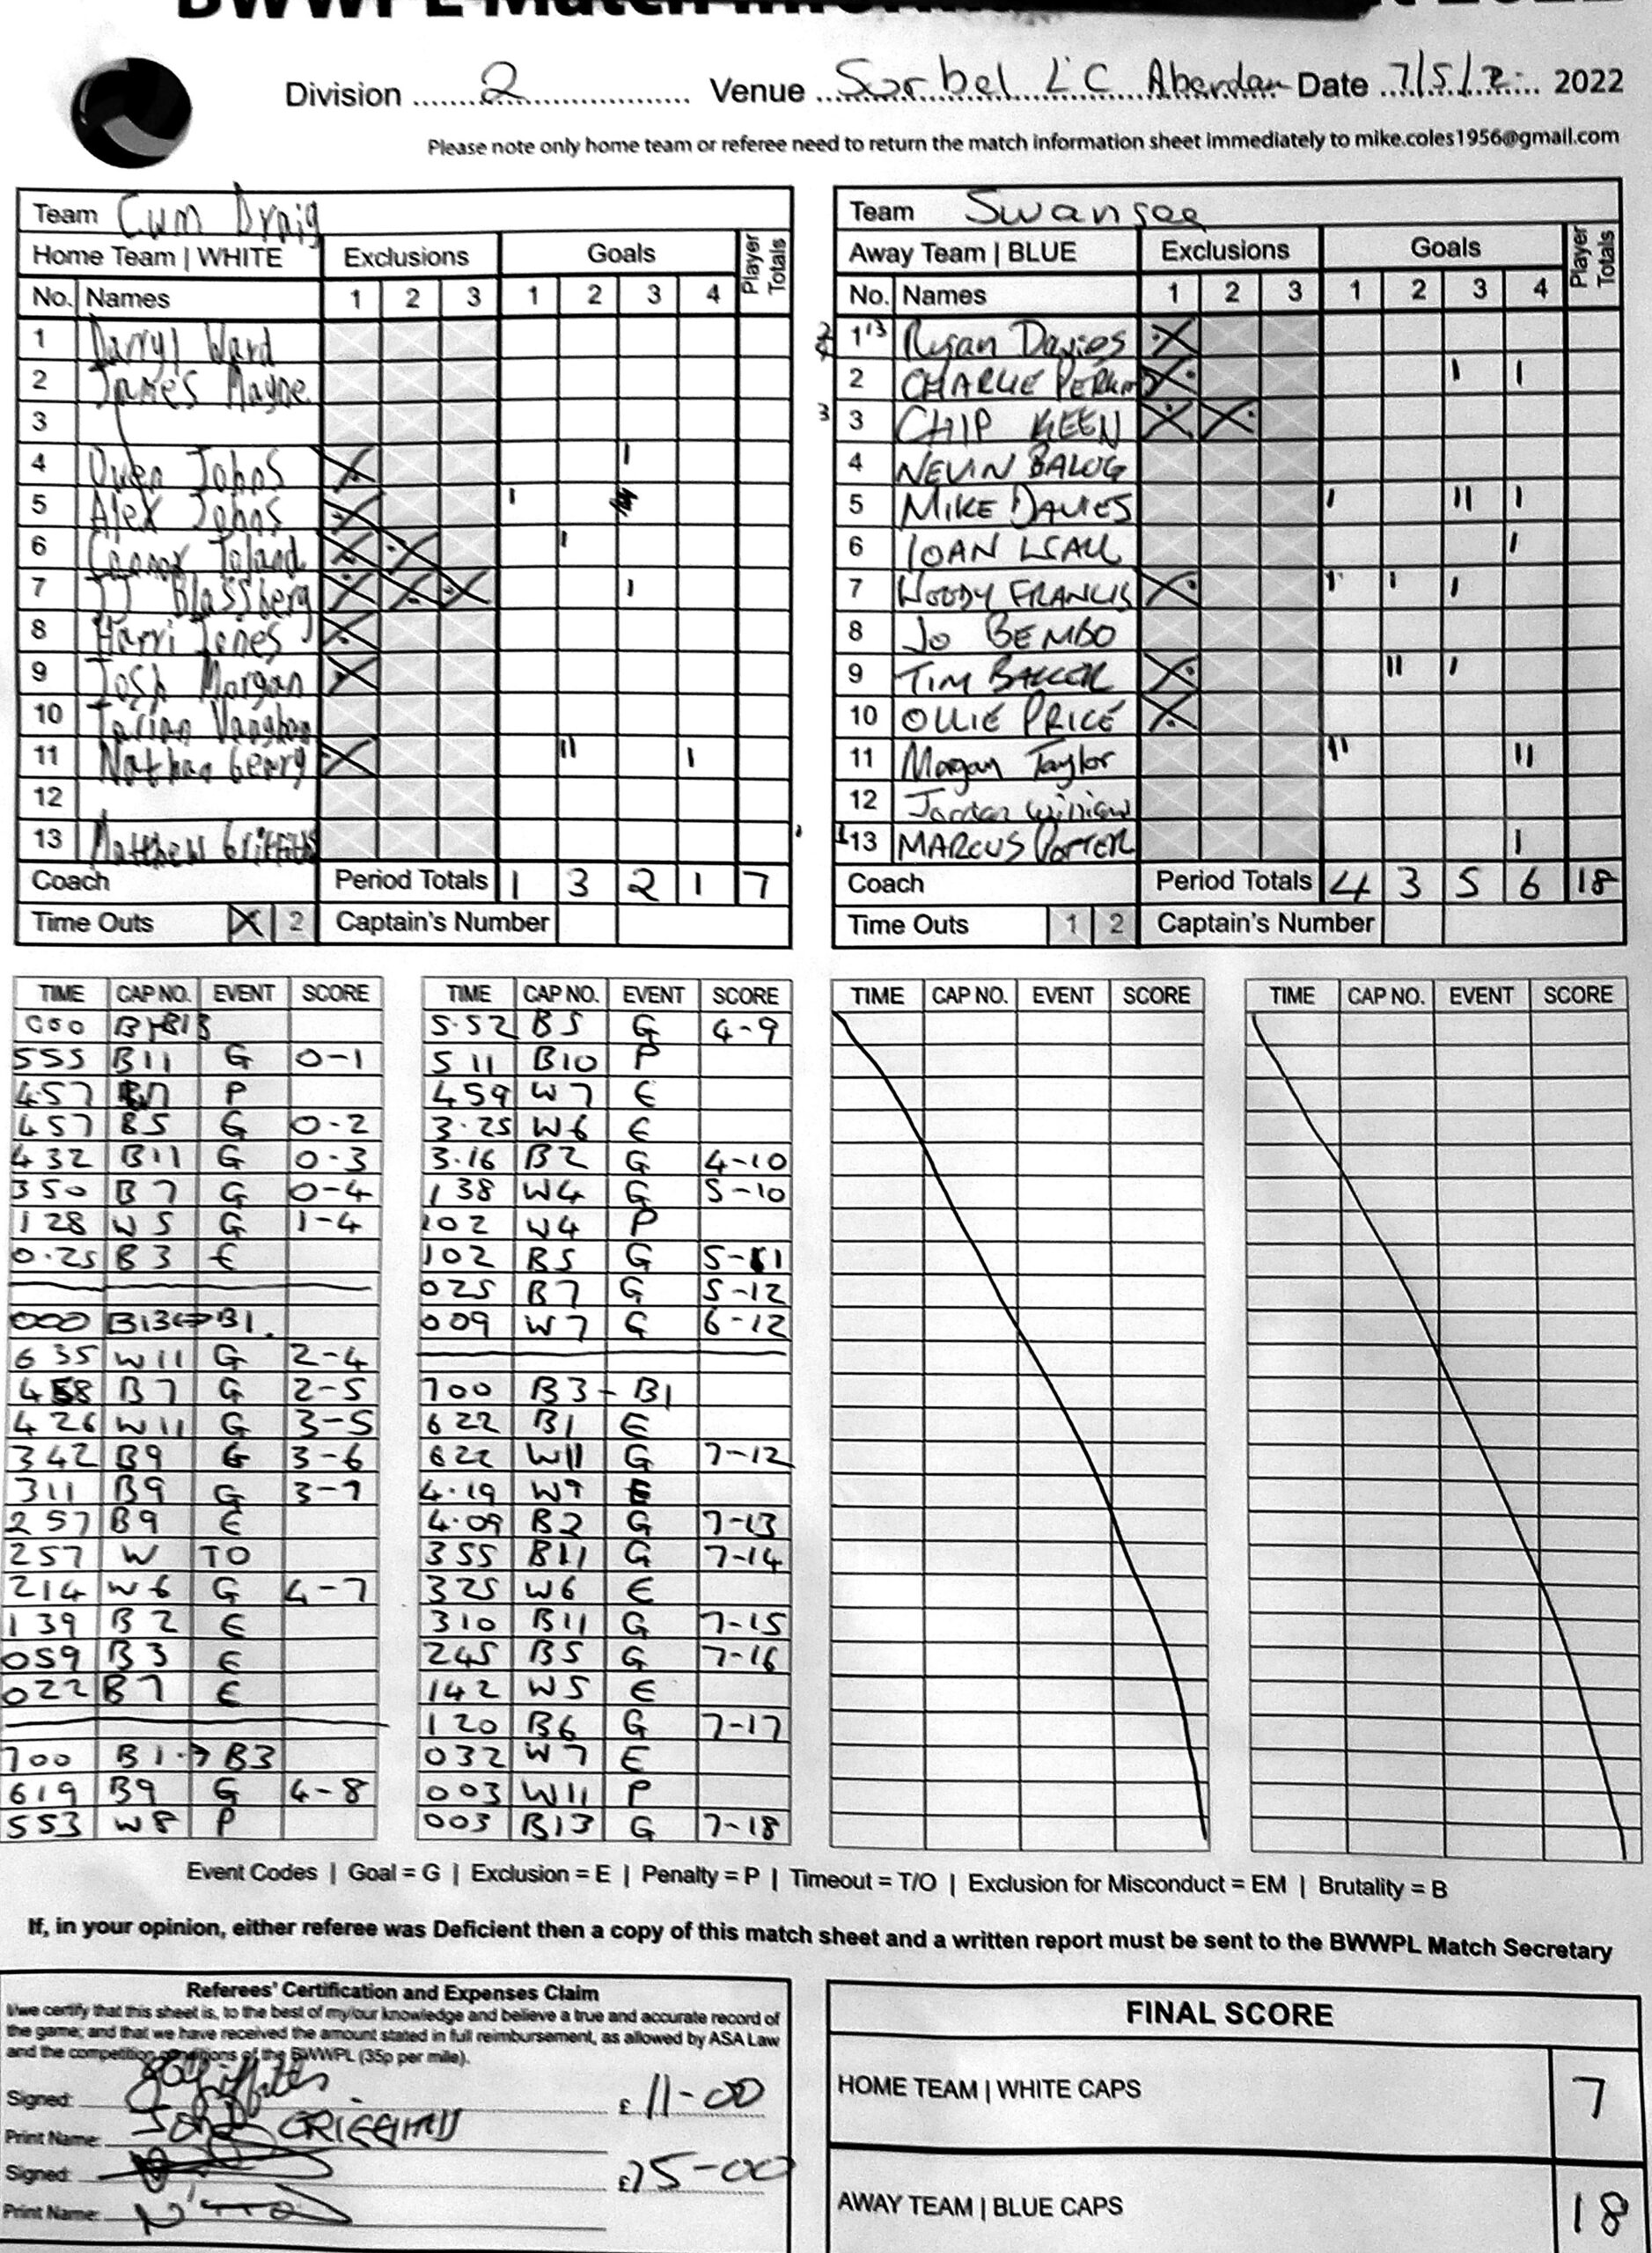 BWWPL Match
Division 2 Venue Sorbel L'C Aberdan Date 7/5/2 2022
Please note only home team or referee need to return the match information sheet immediately to mike.coles1956@gmail.com
Team Cwm Draig
Home Team | WHITE Exclusions Goals Player Totals
No. Names 1 2 3 1 2 3 4
1 Darryl Ward
2 James Mayne
3
4 Owen Johns X I
5 Alex Johns X I
6 Connor Toland X X I
7 JJ Blassberg X X X I
8 Harri Jones X
9 Josh Morgan X
10 Tarian Vaughan
11 Nathan Gerry X II I
12
13 Matthew Griffiths
Coach Period Totals 1 3 2 1 7
Time Outs X 2 Captain's Number
Team Swansea
Away Team | BLUE Exclusions Goals Player Totals
No. Names 1 2 3 1 2 3 4
1 13 Rygan Davies X
2 CHARLIE PERKINS X I I
3 3 CHIP KEEN X X
4 NEVIN BALOG
5 MIKE DAVIES I II I
6 IOAN I
7 WOODY FRANCIS X I I I
8 Jo BEMBO
9 TIM BAKER X II I
10 OLLIE PRICE X
11 Morgan Taylor II II
12 Jordan
1 13 MARCUS PORTER I
Coach Period Totals 4 3 5 6 18
Time Outs 1 2 Captain's Number
TIME CAP NO. EVENT SCORE
000 B1-B13
555 B11 G 0-1
4.57 P
457 B5 G 0-2
432 B11 G 0-3
350 B7 G 0-4
128 W5 G 1-4
0.25 B3 E
000 B13<->B1.
635 W11 G 2-4
458 B7 G 2-5
426 W11 G 3-5
342 B9 G 3-6
311 B9 G 3-7
257 B9 E
257 W TO
214 W6 G 4-7
139 B2 E
059 B3 E
022 B7 E
700 B1 -> B3
619 B9 G 4-8
553 W8 P
TIME CAP NO. EVENT SCORE
5.52 B5 G 4-9
511 B10 P
459 W7 E
3.25 W6 E
3.16 B2 G 4-10
138 W4 G 5-10
102 W4 P
102 B5 G 5-11
025 B7 G 5-12
009 W7 G 6-12
700 B3 - B1
622 B1 E
622 W11 G 7-12
4.19 W9 E
4.09 B2 G 7-13
355 B11 G 7-14
325 W6 E
310 B11 G 7-15
245 B5 G 7-16
142 W5 E
120 B6 G 7-17
032 W7 E
003 W11 P
003 B13 G 7-18
TIME CAP NO. EVENT SCORE
TIME CAP NO. EVENT SCORE
Event Codes | Goal = G | Exclusion = E | Penalty = P | Timeout = T/O | Exclusion for Misconduct = EM | Brutality = B
If, in your opinion, either referee was Deficient then a copy of this match sheet and a written report must be sent to the BWWPL Match Secretary
Referees' Certification and Expenses Claim
I/we certify that this sheet is, to the best of my/our knowledge and believe a true and accurate record of
the game; and that we have received the amount stated in full reimbursement, as allowed by ASA Law
and the competition conditions of the BWWPL (35p per mile).
Signed: £ 11-00
Print Name: JOHN GRIFFITHS
Signed: £75-00
Print Name:
FINAL SCORE
HOME TEAM | WHITE CAPS 7
AWAY TEAM | BLUE CAPS 18